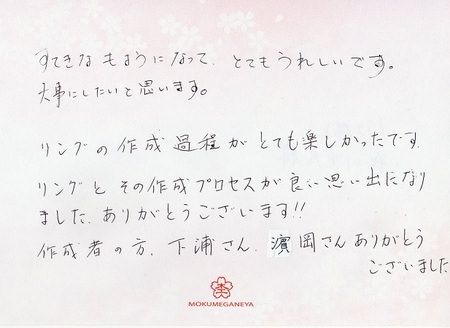 すてきなもようになって、とてもうれしいです。
大事にしたいと思います。
リングの作成過程がとても楽しかったです
リングとその作成プロセスが良い思い出になり
ました。ありがとうございます!!
作成者の方、下浦さん、濱岡さんありがとう
ございました
MOKUMEGANEYA